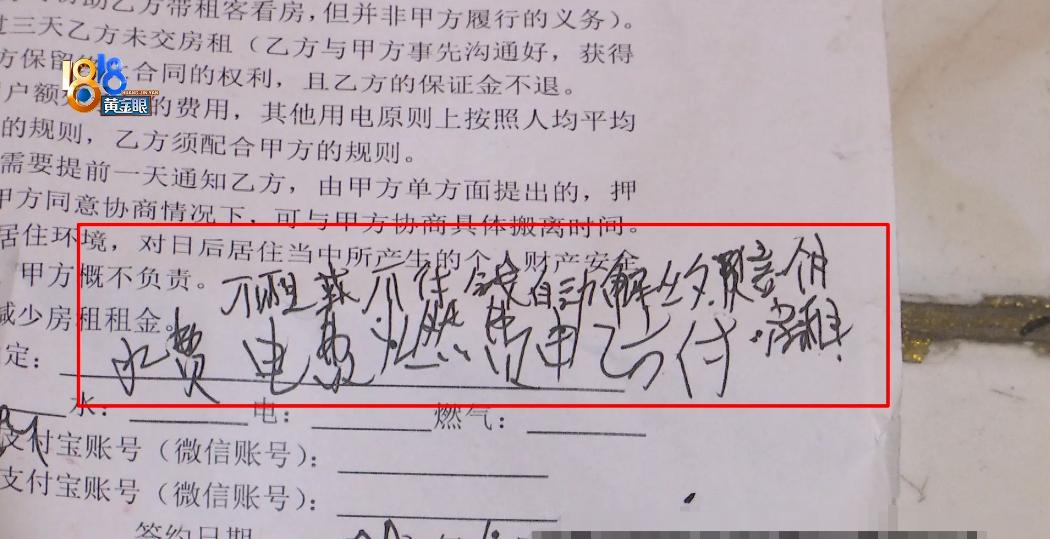 协助乙方带租客看房，但并非甲方履行的义务）。
过三天乙方未交房租（乙方与甲方事先沟通好，获得
方保留 合同的权利，且乙方的保证金不退。
1818
黄金眼
户额 的费用，其他用电原则上按照人均平均
的规则，乙方须配合甲方的规则。
需要提前一天通知乙方，由甲方单方面提出的，押
甲方同意协商情况下，可与甲方协商具体搬离时间。
居住环境，对日后居住当中所产生的个人财产安全
甲方概不负责。
不租或不住 自动解约
减少房租租金。
水费 电费 燃费由乙方付 房租
定：
水： 电： 燃气：
支付宝账号（微信账号）：
支付宝账号（微信账号）：
签约日期